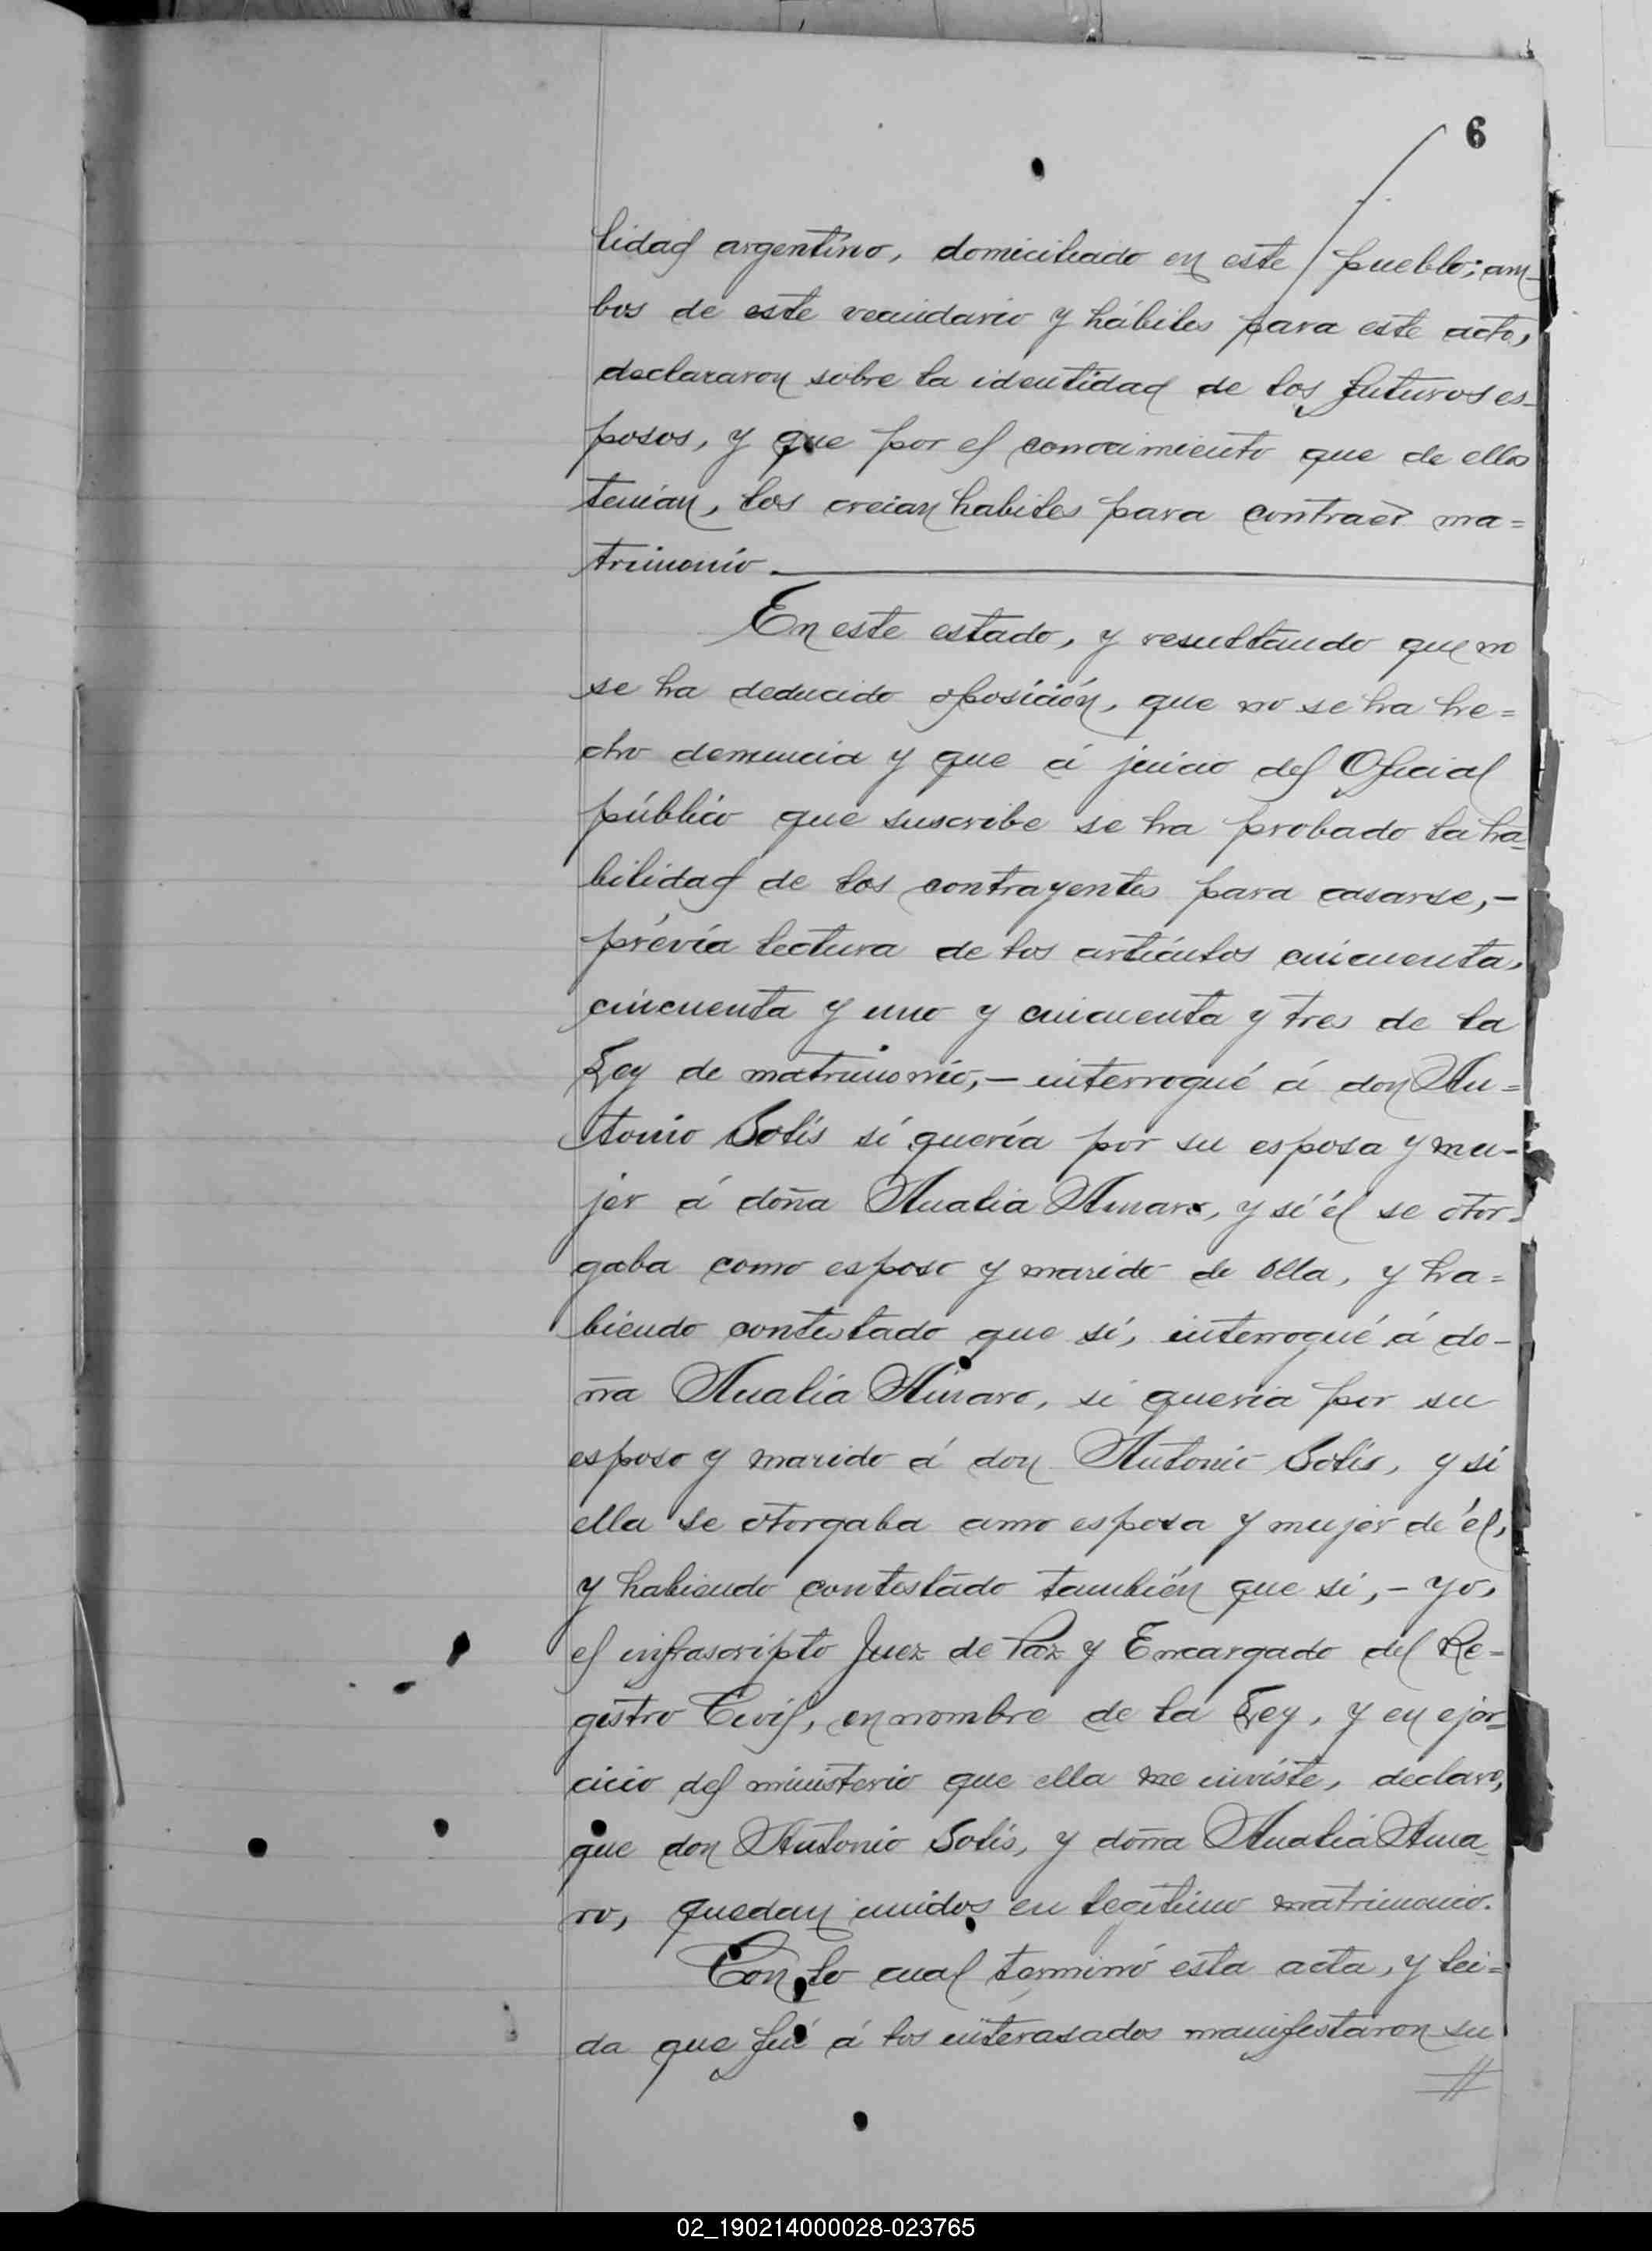 6
lidad argentino, domiciliado en este pueblo; am-
bos de este vecindario y hábiles para este acto,
declararon sobre la identidad de los futuros es-
posos, y que por el conocimiento que de ellos
tenían, los creían habiles para contraer ma=
trimonio.
En este estado, y resultando que no
se ha deducido oposición, que no se ha he=
cho denuncia y que á juicio del Oficial
público que suscribe se ha probado la ha-
bilidad de los contrayentes para casarse,-
prévia lectura de los artículos cincuenta,
cincuenta y uno y cincuenta y tres de la
Ley de matrimonio,- interrogué á don An=
tonio Solís sí quería por su esposa y mu-
jer á doña Analia Amaro, y sí él se otor-
gaba como esposo y marido de ella, y ha=
biendo contestado que sí, interrogué á do-
ña Analía Amaro, si quería por su
esposo y marido á don Antonio Solís, y si
ella se otorgaba como esposa y mujer de él,
y habiendo contestado también que si,- yo,
el infrascripto Juez de Paz y Encargado del Re=
gistro Civil, en nombre de la Ley, y en ejer-
cicio del ministerio que ella me inviste, declaro,
que don Antonio Solís, y doña Analia Ama-
ro, quedan unidos en legítimo matrimonio.
Con lo cual terminó esta acta, y lei=
da que fué á los interasados manifestaron su
//
02_190214000028-023765